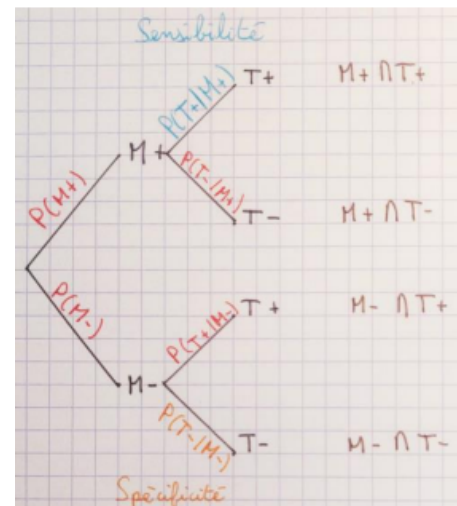 Sensibilité
T+ M+ ∩ T+
P(T+/M+)
M+
P(T-/M+)
P(M+)
T- M+ ∩ T-
P(M-)
T+ M- ∩ T+
P(T+/M-)
M-
P(T-/M-)
T- M- ∩ T-
Spécificité